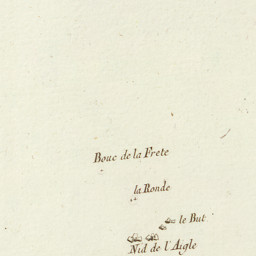 Bouc de la Frete
la Ronde
le But
Nid de l'Aigle